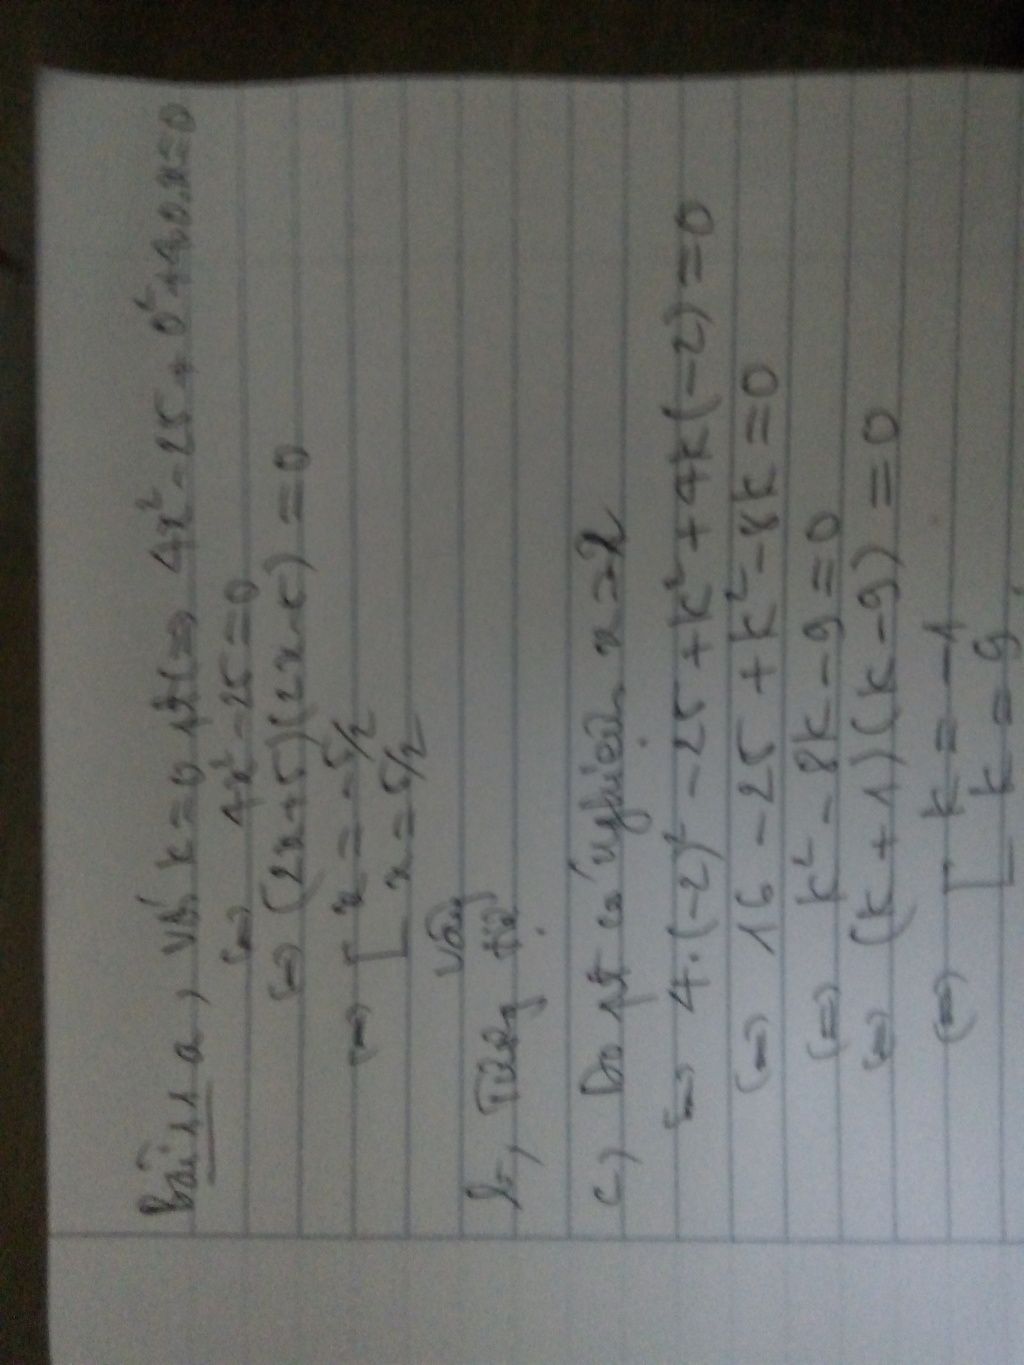 Bài 11 a, Với k=0 pt <=> 4x² - 25 + 0² + 4.0.x=0
<=> 4x² - 25 = 0
<=> (2x+5)(2x-5) = 0
<=> [ x = -5/2
x = 5/2
Vậy
b, Tương tự
c) Do pt có nghiệm x=-2
<=> 4.(-2)² - 25 + k² + 4k(-2) = 0
<=> 16 - 25 + k² - 8k = 0
<=> k² - 8k - 9 = 0
<=> (k+1)(k-9) = 0
<=> [ k = -1
k = 9